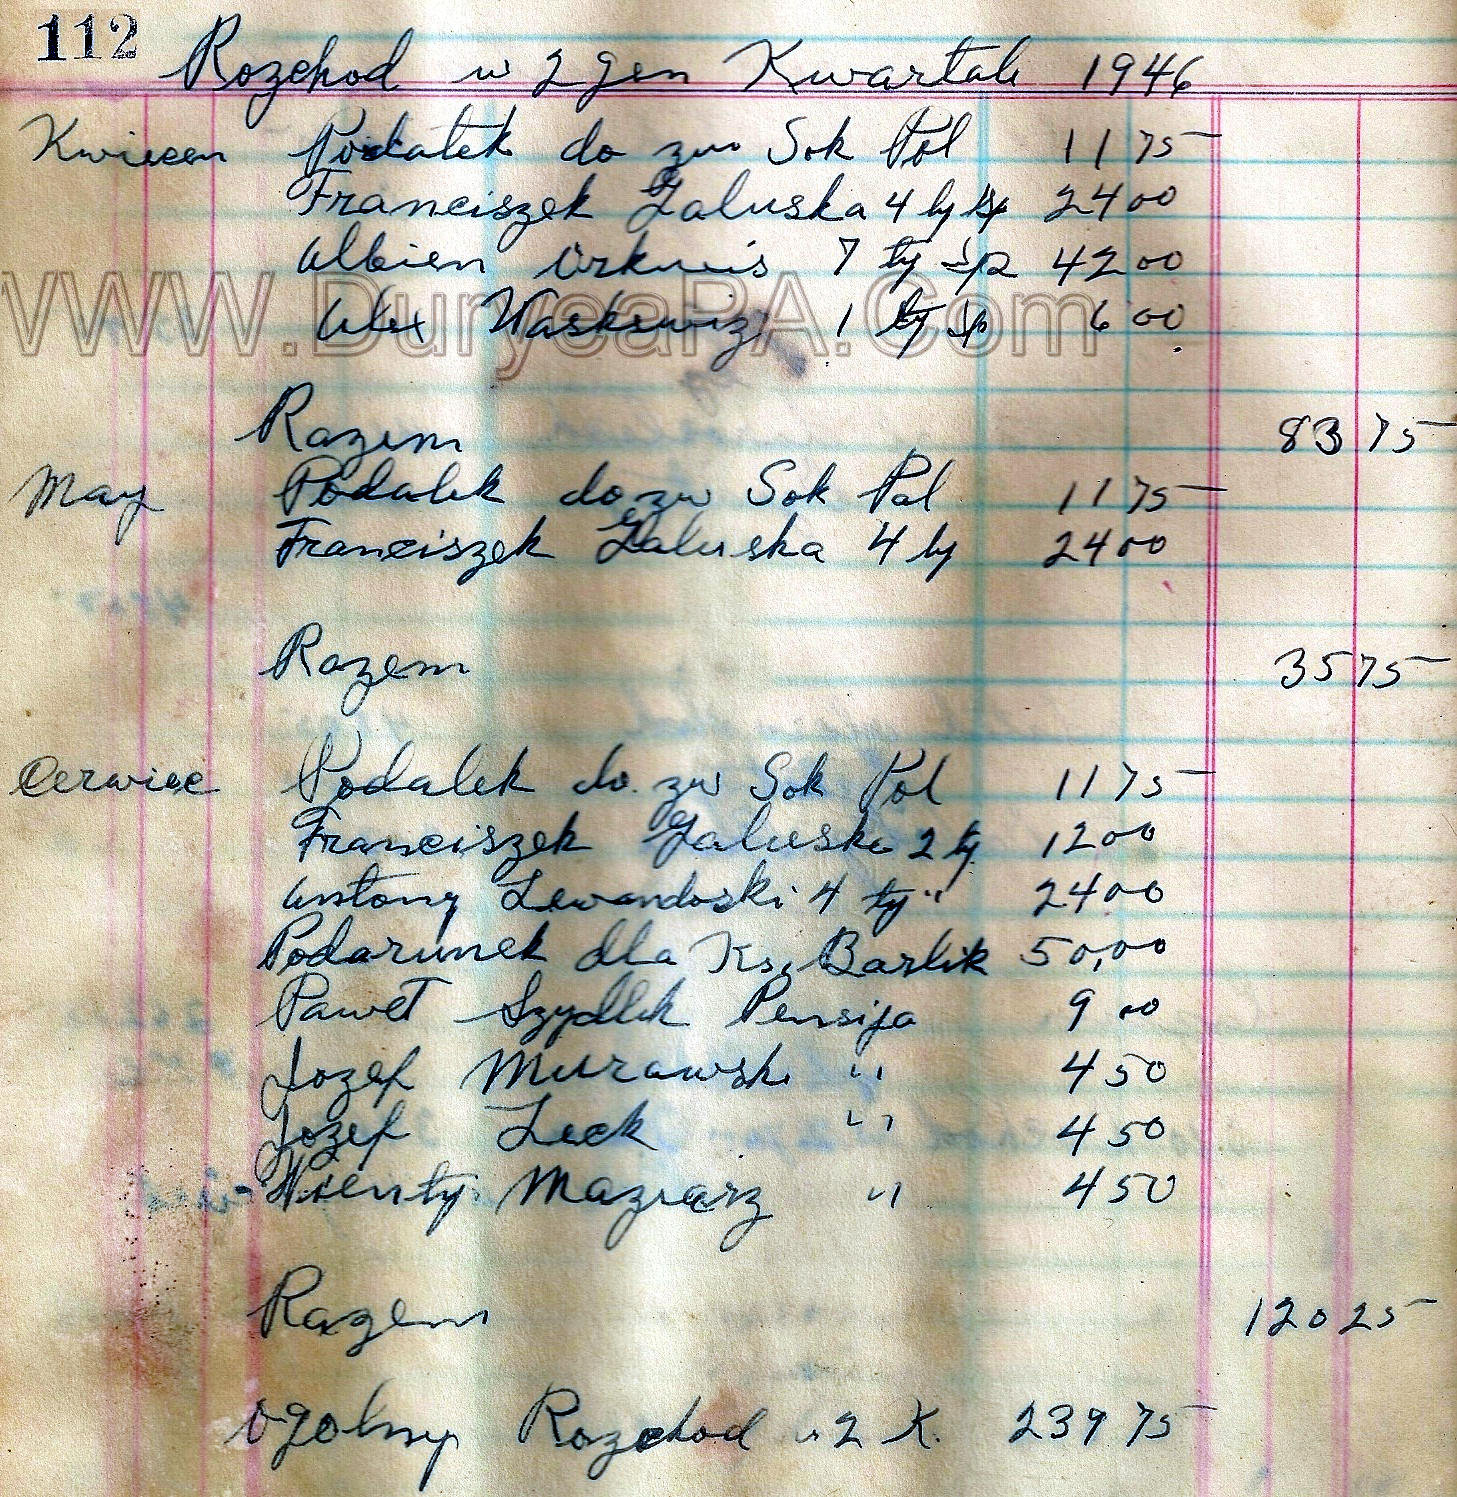 112
Rozchod w 2 gem Kwartale 1946
Kwiecen Podatek do zw Sok Pol 11 75
Franciszek Galuska 4 ty sp 24 00
Albien Urkwis 7 ty sp 42 00
Alex Waskewiz 1 ty sp 6 00
www.DuryeaPA.Com
Razem 83 75
May Podatek do zw Sok Pol 11 75
Franciszek Galuska 4 ty 24 00
Razem 35 75
Cerwiec Podatek do zw Sok Pol 11 75
Franciszek Galuska 2 ty 12 00
Antony Lewandoski 4 ty " 24 00
Podarunek dla Ks. Barlik 50,00
Paweł Szydlek Pensija 9 00
Jozef Murawski " 4 50
Jozef Leck " 4 50
Wicenty Maziarz " 4 50
Razem 120 25
Ogolny Rozchod w 2 K. 239 75